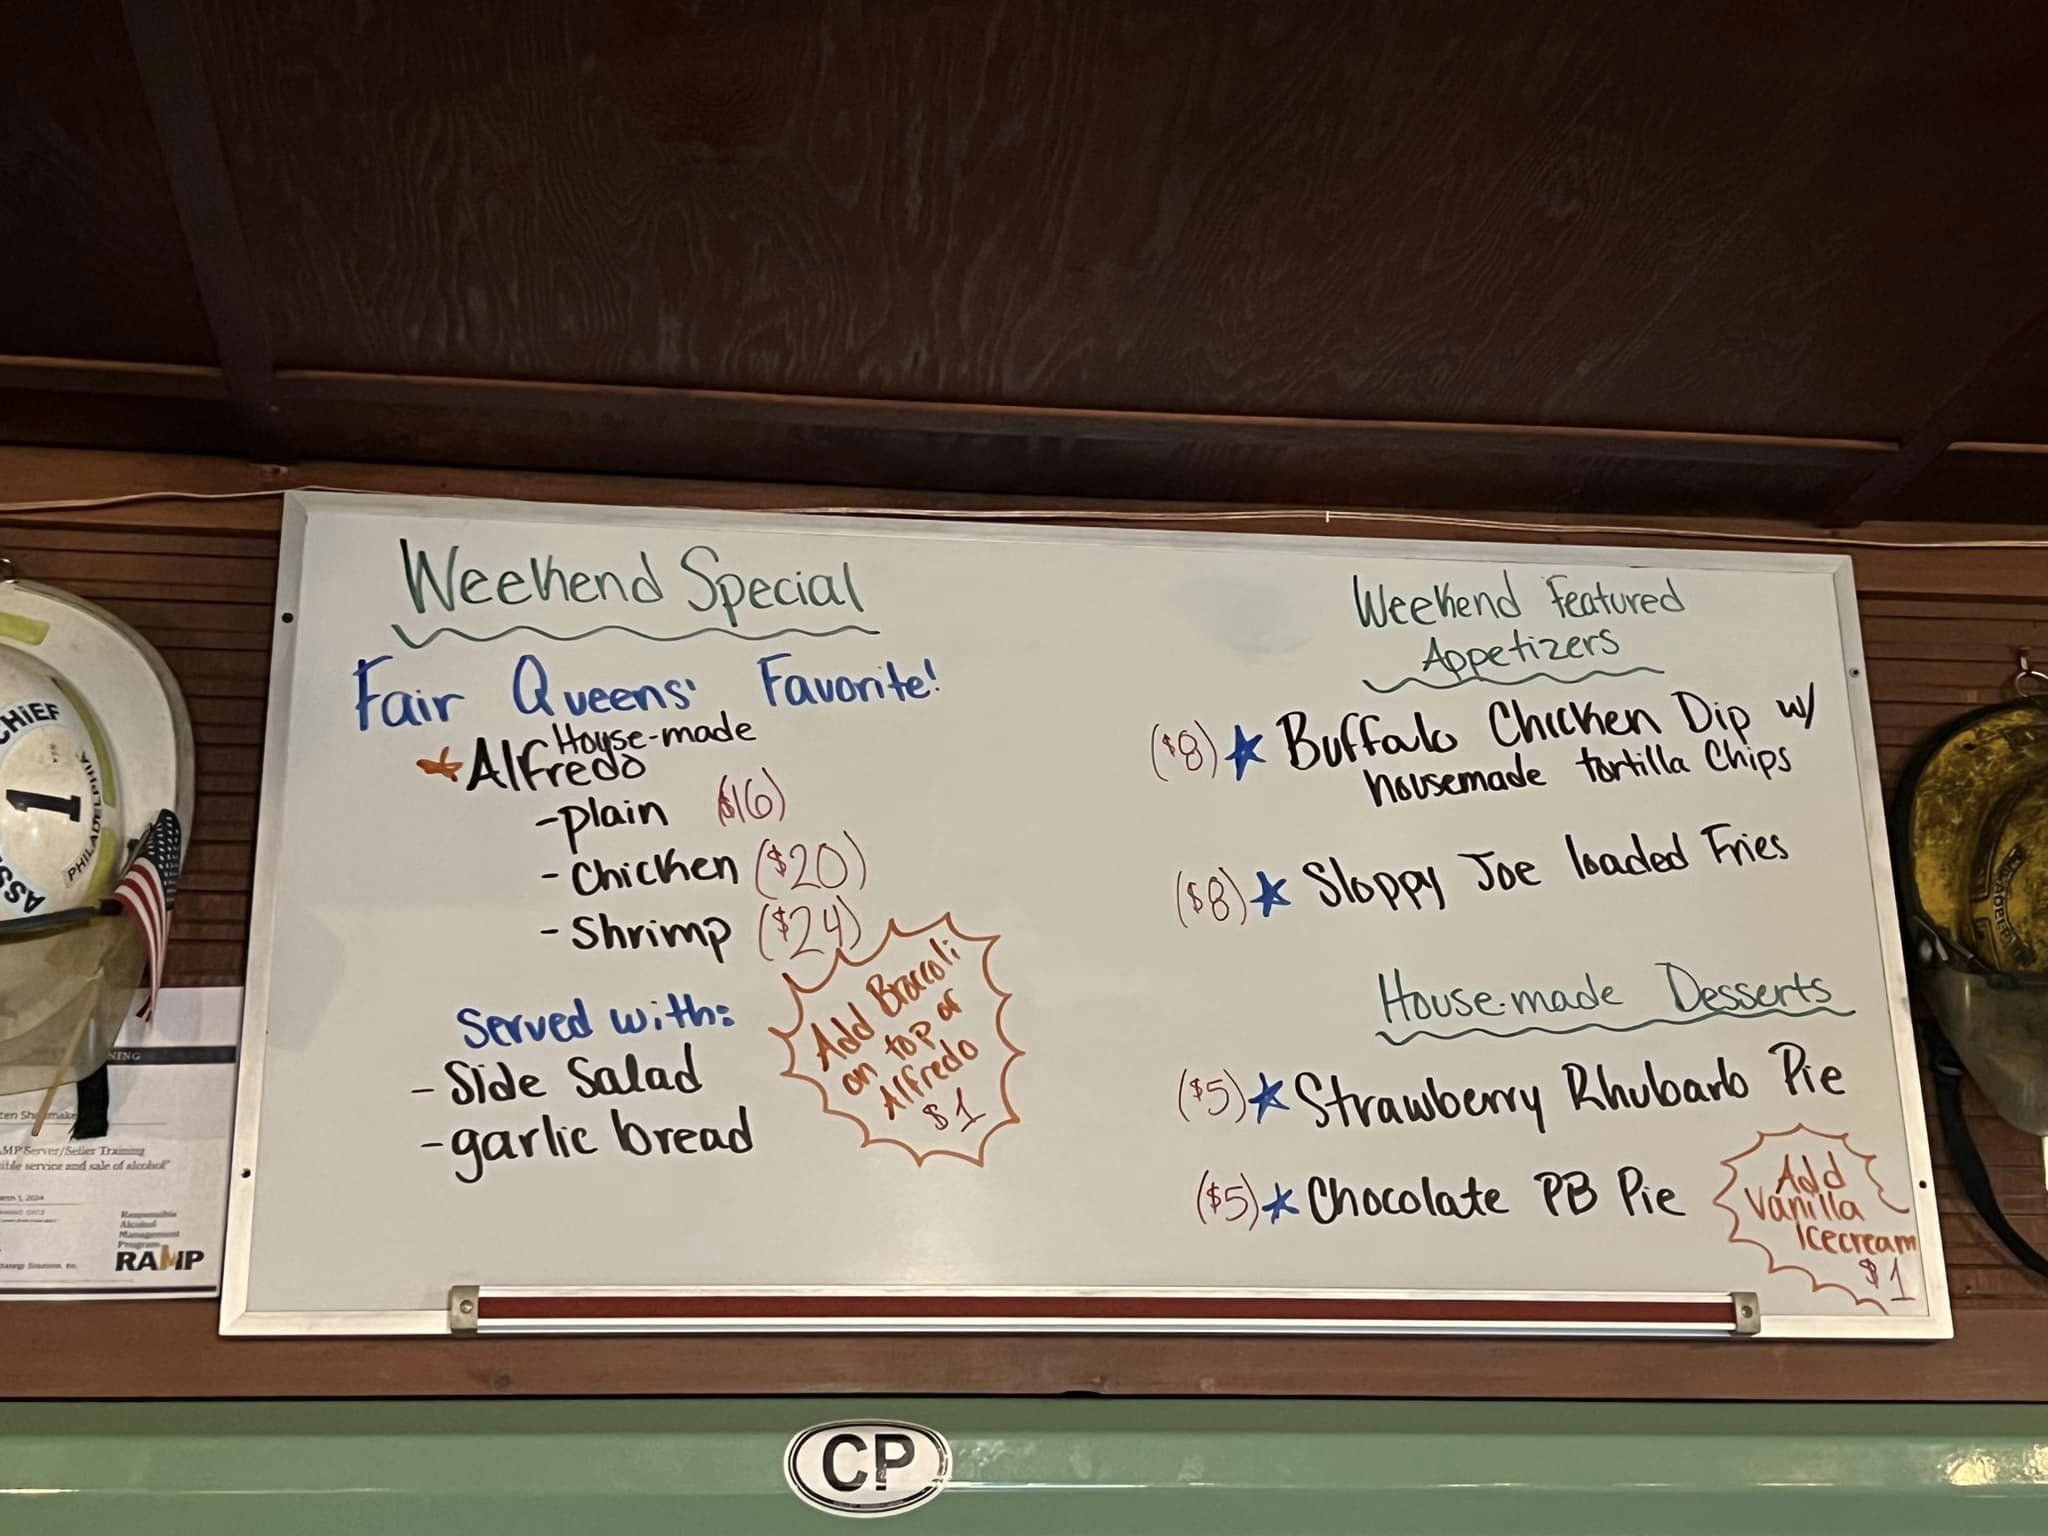 Weekend Special
Fair Queens' Favorite!
House-made
Alfredo
- plain ($16)
- Chicken ($20)
- Shrimp ($24)
Served with:
- Side Salad
- garlic bread
Add Broccoli
on top of
Alfredo
$1
Weekend Featured
Appetizers
($8) Buffalo Chicken Dip w/
housemade tortilla Chips
($8) Sloppy Joe loaded Fries
House-made Desserts
($5) Strawberry Rhubarb Pie
($5) Chocolate PB Pie
Add
Vanilla
Icecream
$1
CHIEF
1
PHILADELPHIA
ASS
NING
MP Server/Seller Training
ible service and sale of alcohol"
Responsible
Alcohol
Management
Program
RAMP
CP